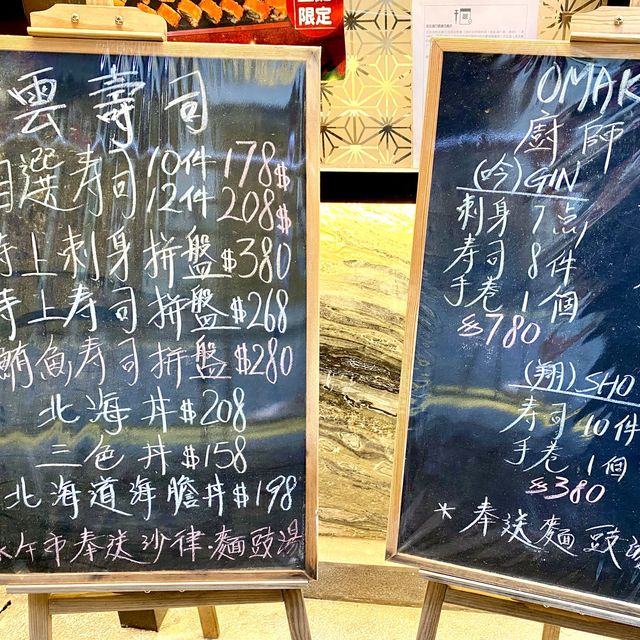 限定
雲壽司
自選寿司 10件 178$
12件 208$
特上刺身拼盤 $380
特上寿司拼盤 $268
鮪魚寿司拼盤 $280
北海丼 $208
三色丼 $158
北海道海膽丼 $198
*午市奉送沙律.麵豉湯
OMAK
厨師
(吟) GIN
刺身 7点
寿司 8件
手卷 1個
$780
(翔) SHO
寿司 10件
手卷 1個
$380
*奉送麵豉湯